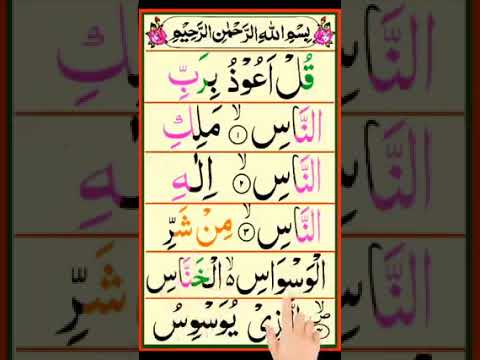 بِسْمِ اللهِ الرَّحْمٰنِ الرَّحِيْمِ
قُلْ اَعُوْذُ بِرَبِّ
النَّاسِ ۙ﴿۱﴾ مَلِكِ
النَّاسِ ۙ﴿۲﴾ اِلٰهِ
النَّاسِ ۙ﴿۳﴾ مِنْ شَرِّ
الْوَسْوَاسِ ۙ۬ الْخَنَّاسِ
الَّذِیْ یُوَسْوِسُ